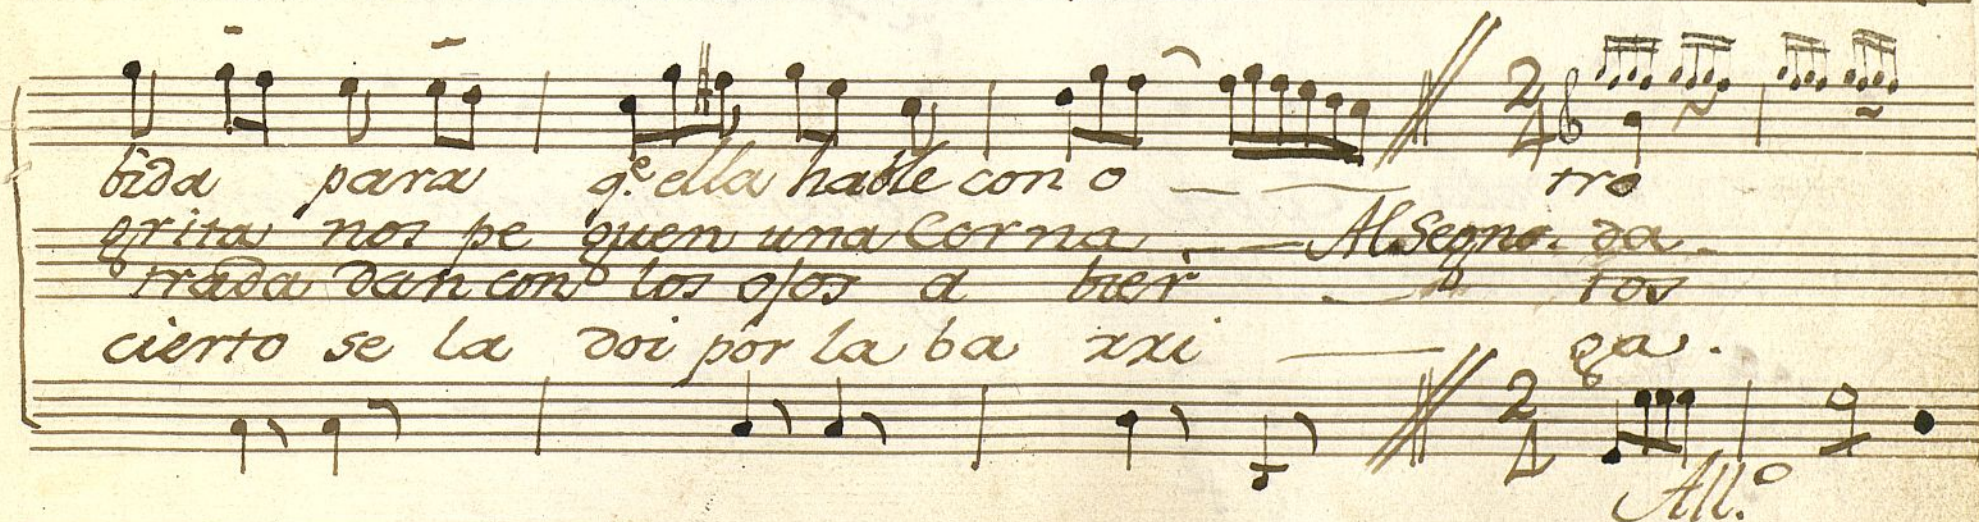 2
4
bida para q.e ella hable con o — — tro
grita nos pe guen una Corna — — Al Segno. da
trada dan con los ojos a bier — tos
cierto se la doi por la ba rri — ga.
2
4
All.o